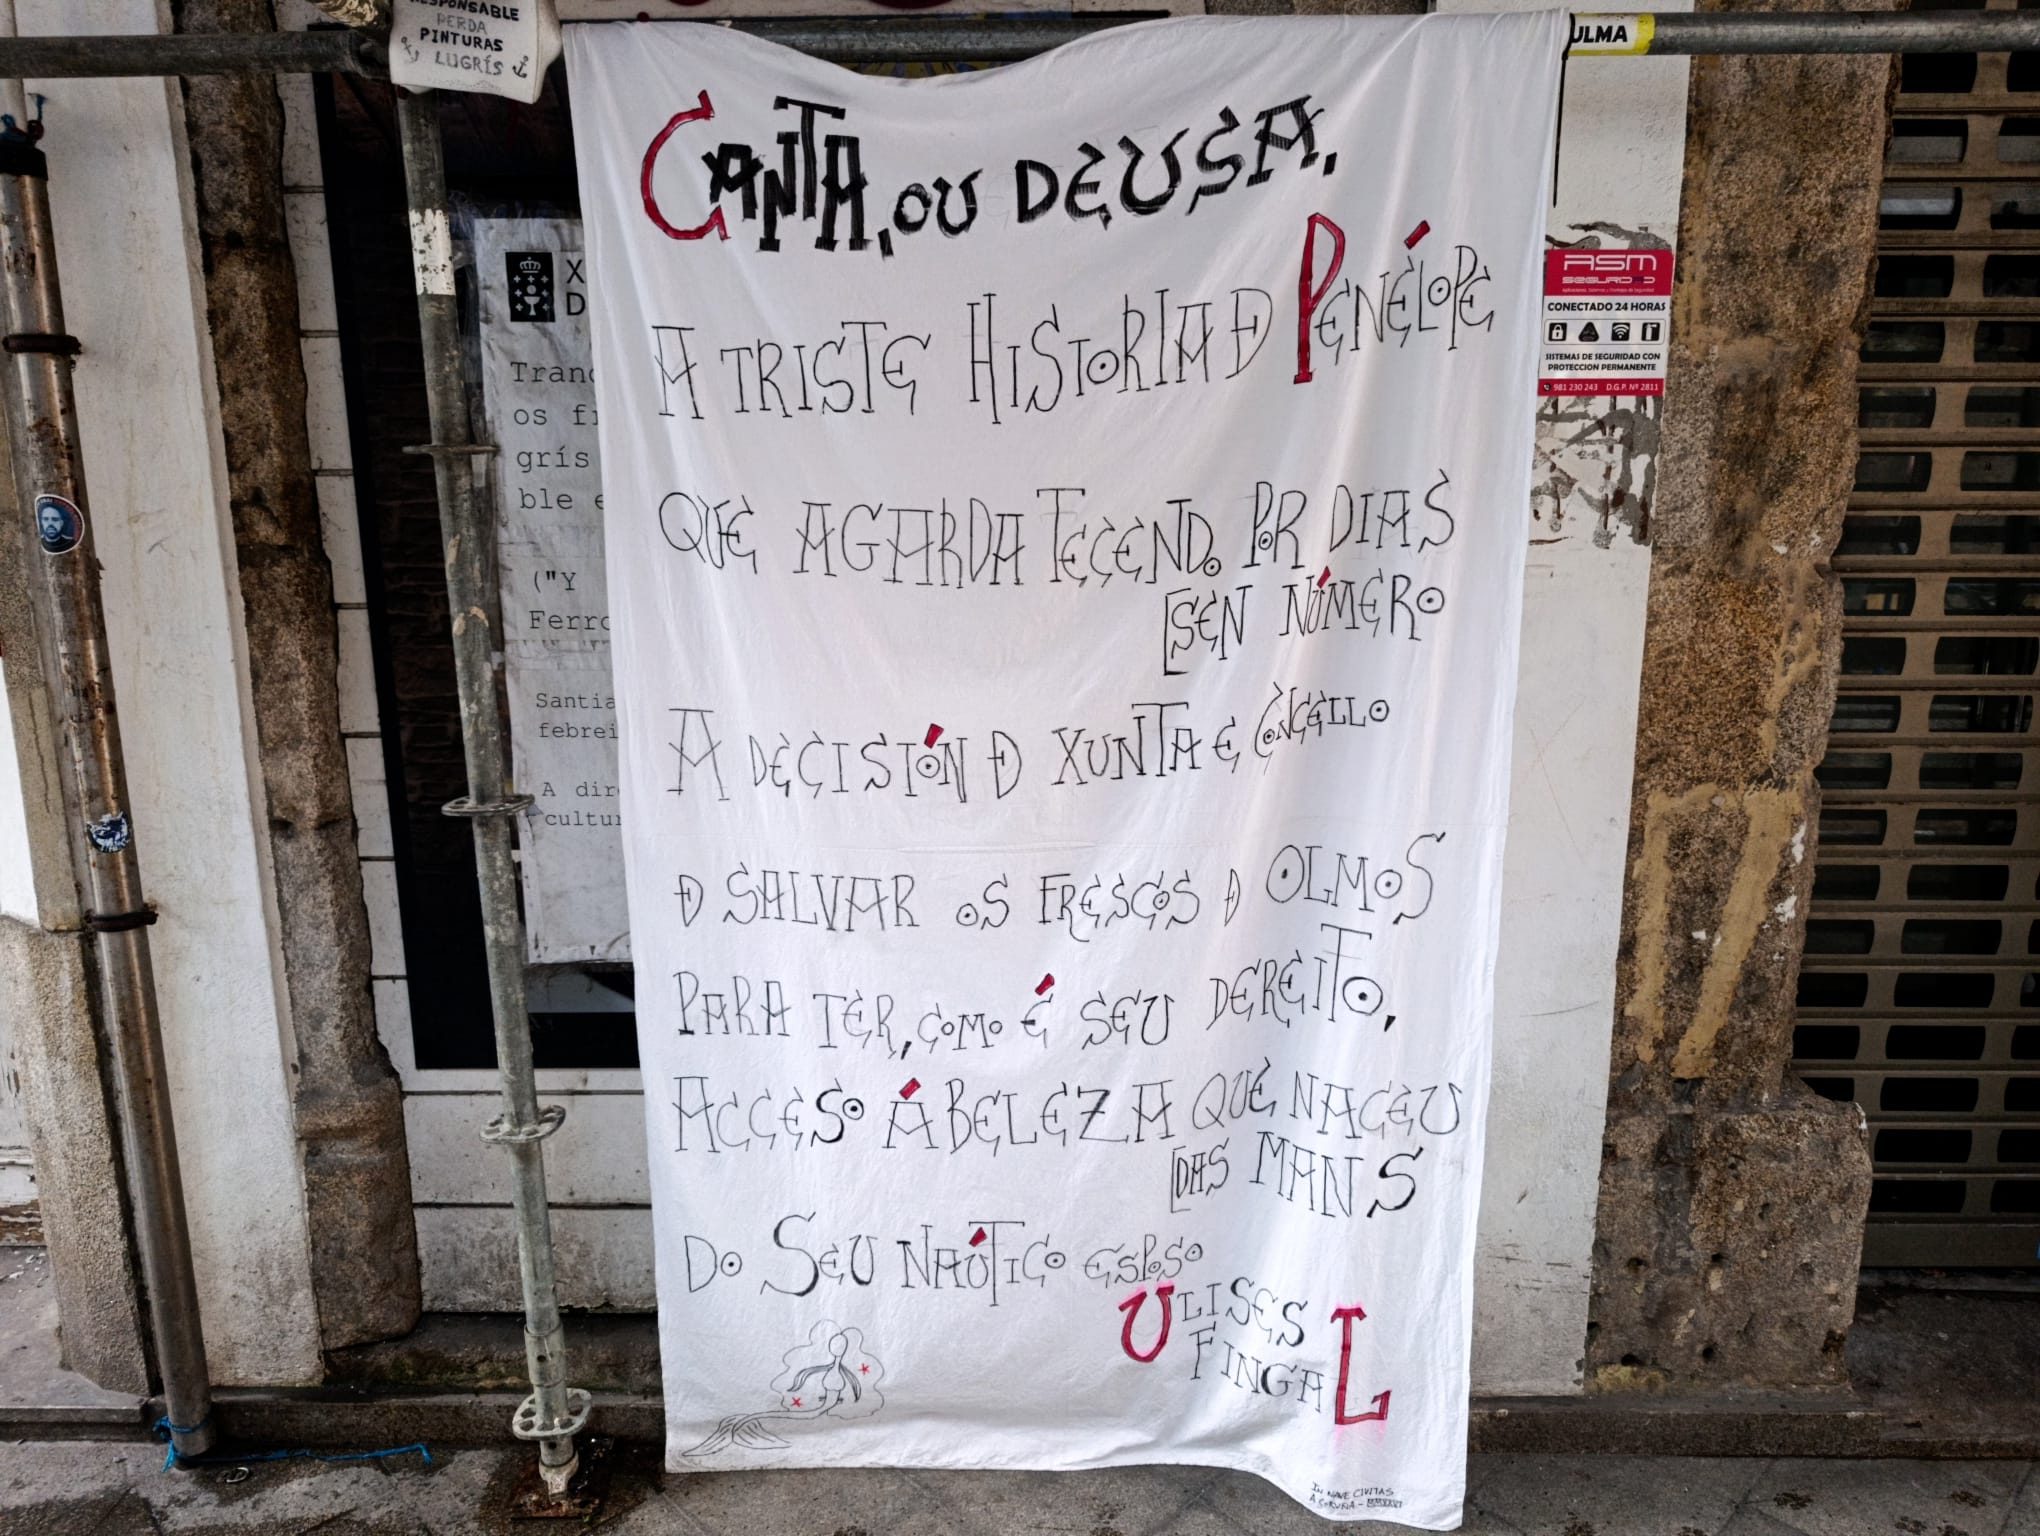 RESPONSABLE
PERDA
PINTURAS
LUGRÍS
ULMA
CANTA, OU DEUSA,
A TRISTE HISTORIA Đ PENÉLOPE
QUE AGARDA TECENDO POR DIAS
[SEN NÚMERO
A DECISIÓN Đ XUNTA E CONCELLO
Đ SALVAR OS FRESCOS Đ OLMOS
PARA TER, COMO É SEU DEREITO,
ACCESO Á BELEZA QUE NACEU
[DAS MANS
DO SEU NAÚTICO ESPOSO
ULISES
FINGAL
IN NAVE CIVITAS
A CORUÑA -
X
D
Tran
os f
grís
ble e
("Y
Ferro
Santia
febrei
A dir
cultur
ASM
SEGURIDAD
CONECTADO 24 HORAS
SISTEMAS DE SEGURIDAD CON
PROTECCION PERMANENTE
981 230 243 D.G.P. Nº 2811